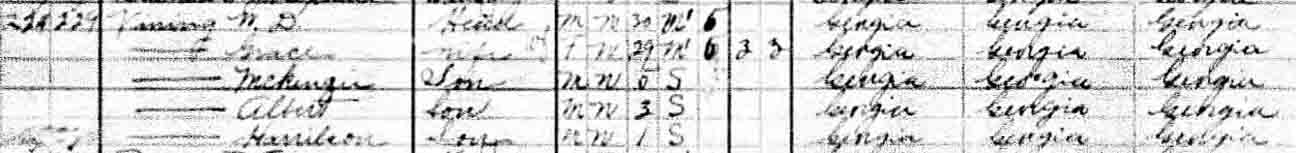 229 Vining W. D. Head M W 30 M1 6 Georgia Georgia Georgia
Grace Wife F W 29 M1 6 3 3 Georgia Georgia Georgia
McKenzie Son M W 5 S Georgia Georgia Georgia
Albert Son M W 3 S Georgia Georgia Georgia
Harrilson Son M W 1 S Georgia Georgia Georgia